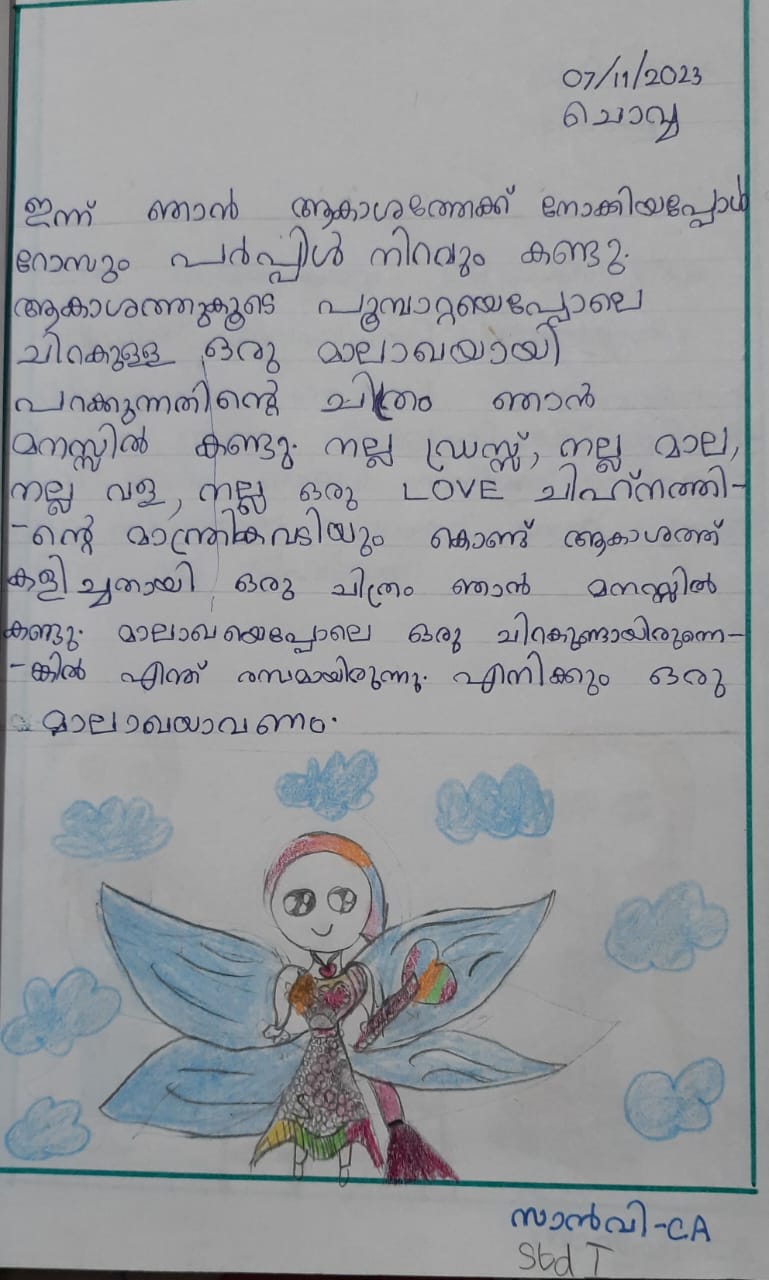 07/11/2023
ചൊവ്വ
ഇന്ന് ഞാൻ ആകാശത്തേക്ക് നോക്കിയപ്പോൾ
റോസും പർപ്പിൾ നിറവും കണ്ടു.
ആകാശത്തുകൂടെ പൂമ്പാറ്റയെപ്പോലെ
ചിറകുള്ള ഒരു മാലാഖയായി
പറക്കുന്നതിന്റെ ചിത്രം ഞാൻ
മനസ്സിൽ കണ്ടു. നല്ല ഡ്രസ്സ്, നല്ല മാല,
നല്ല വള, നല്ല ഒരു LOVE ചിഹ്നത്തി-
-ന്റെ മാന്ത്രികവടിയും കൊണ്ട് ആകാശത്ത്
കളിച്ചതായി ഒരു ചിത്രം ഞാൻ മനസ്സിൽ
കണ്ടു. മാലാഖയെപ്പോലെ ഒരു ചിറകുണ്ടായിരുന്നെ-
-ങ്കിൽ എന്ത് രസമായിരുന്നു. എനിക്കും ഒരു
മാലാഖയാവണം.
സാൻവി-CA
Std I